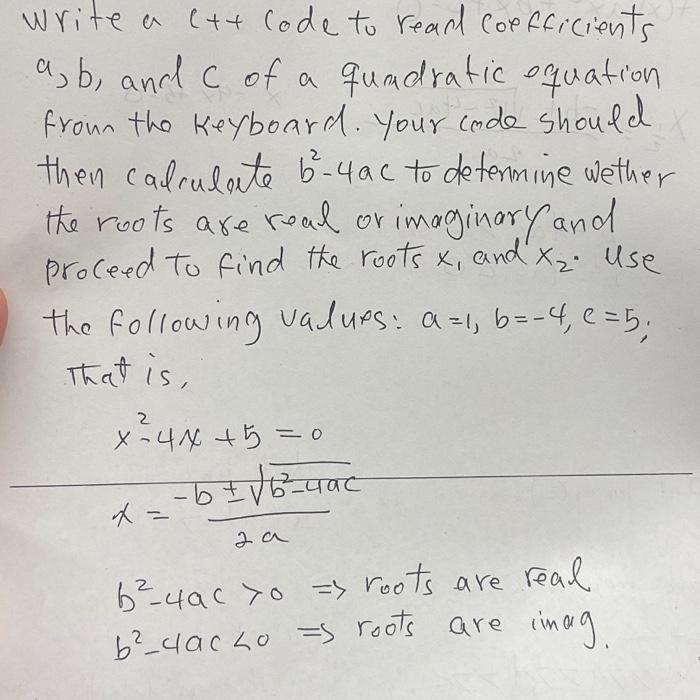 write a C++ code to read coefficients
a, b, and c of a quadratic equation
from the keyboard. Your code should
then calculate b²-4ac to determine wether
the roots are real or imaginary and
proceed to find the roots x₁ and x₂. Use
the following values: a=1, b=-4, c=5;
That is,
x²-4x+5=0
x = (-b ± √(b²-4ac)) / 2a
b²-4ac >0 => roots are real
b²-4ac <0 => roots are imag.